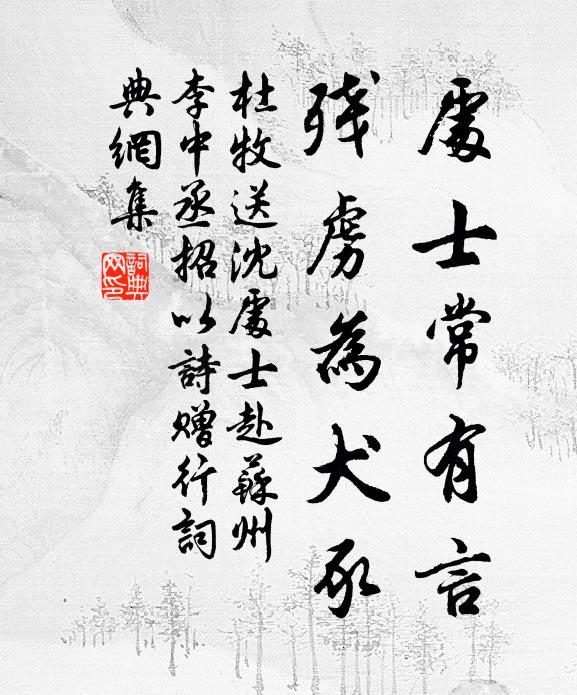 處士常有言
殘虜為犬豕
杜牧送沈處士赴蘇州
李中丞招以詩贈行詞
典網集
詞典
网印